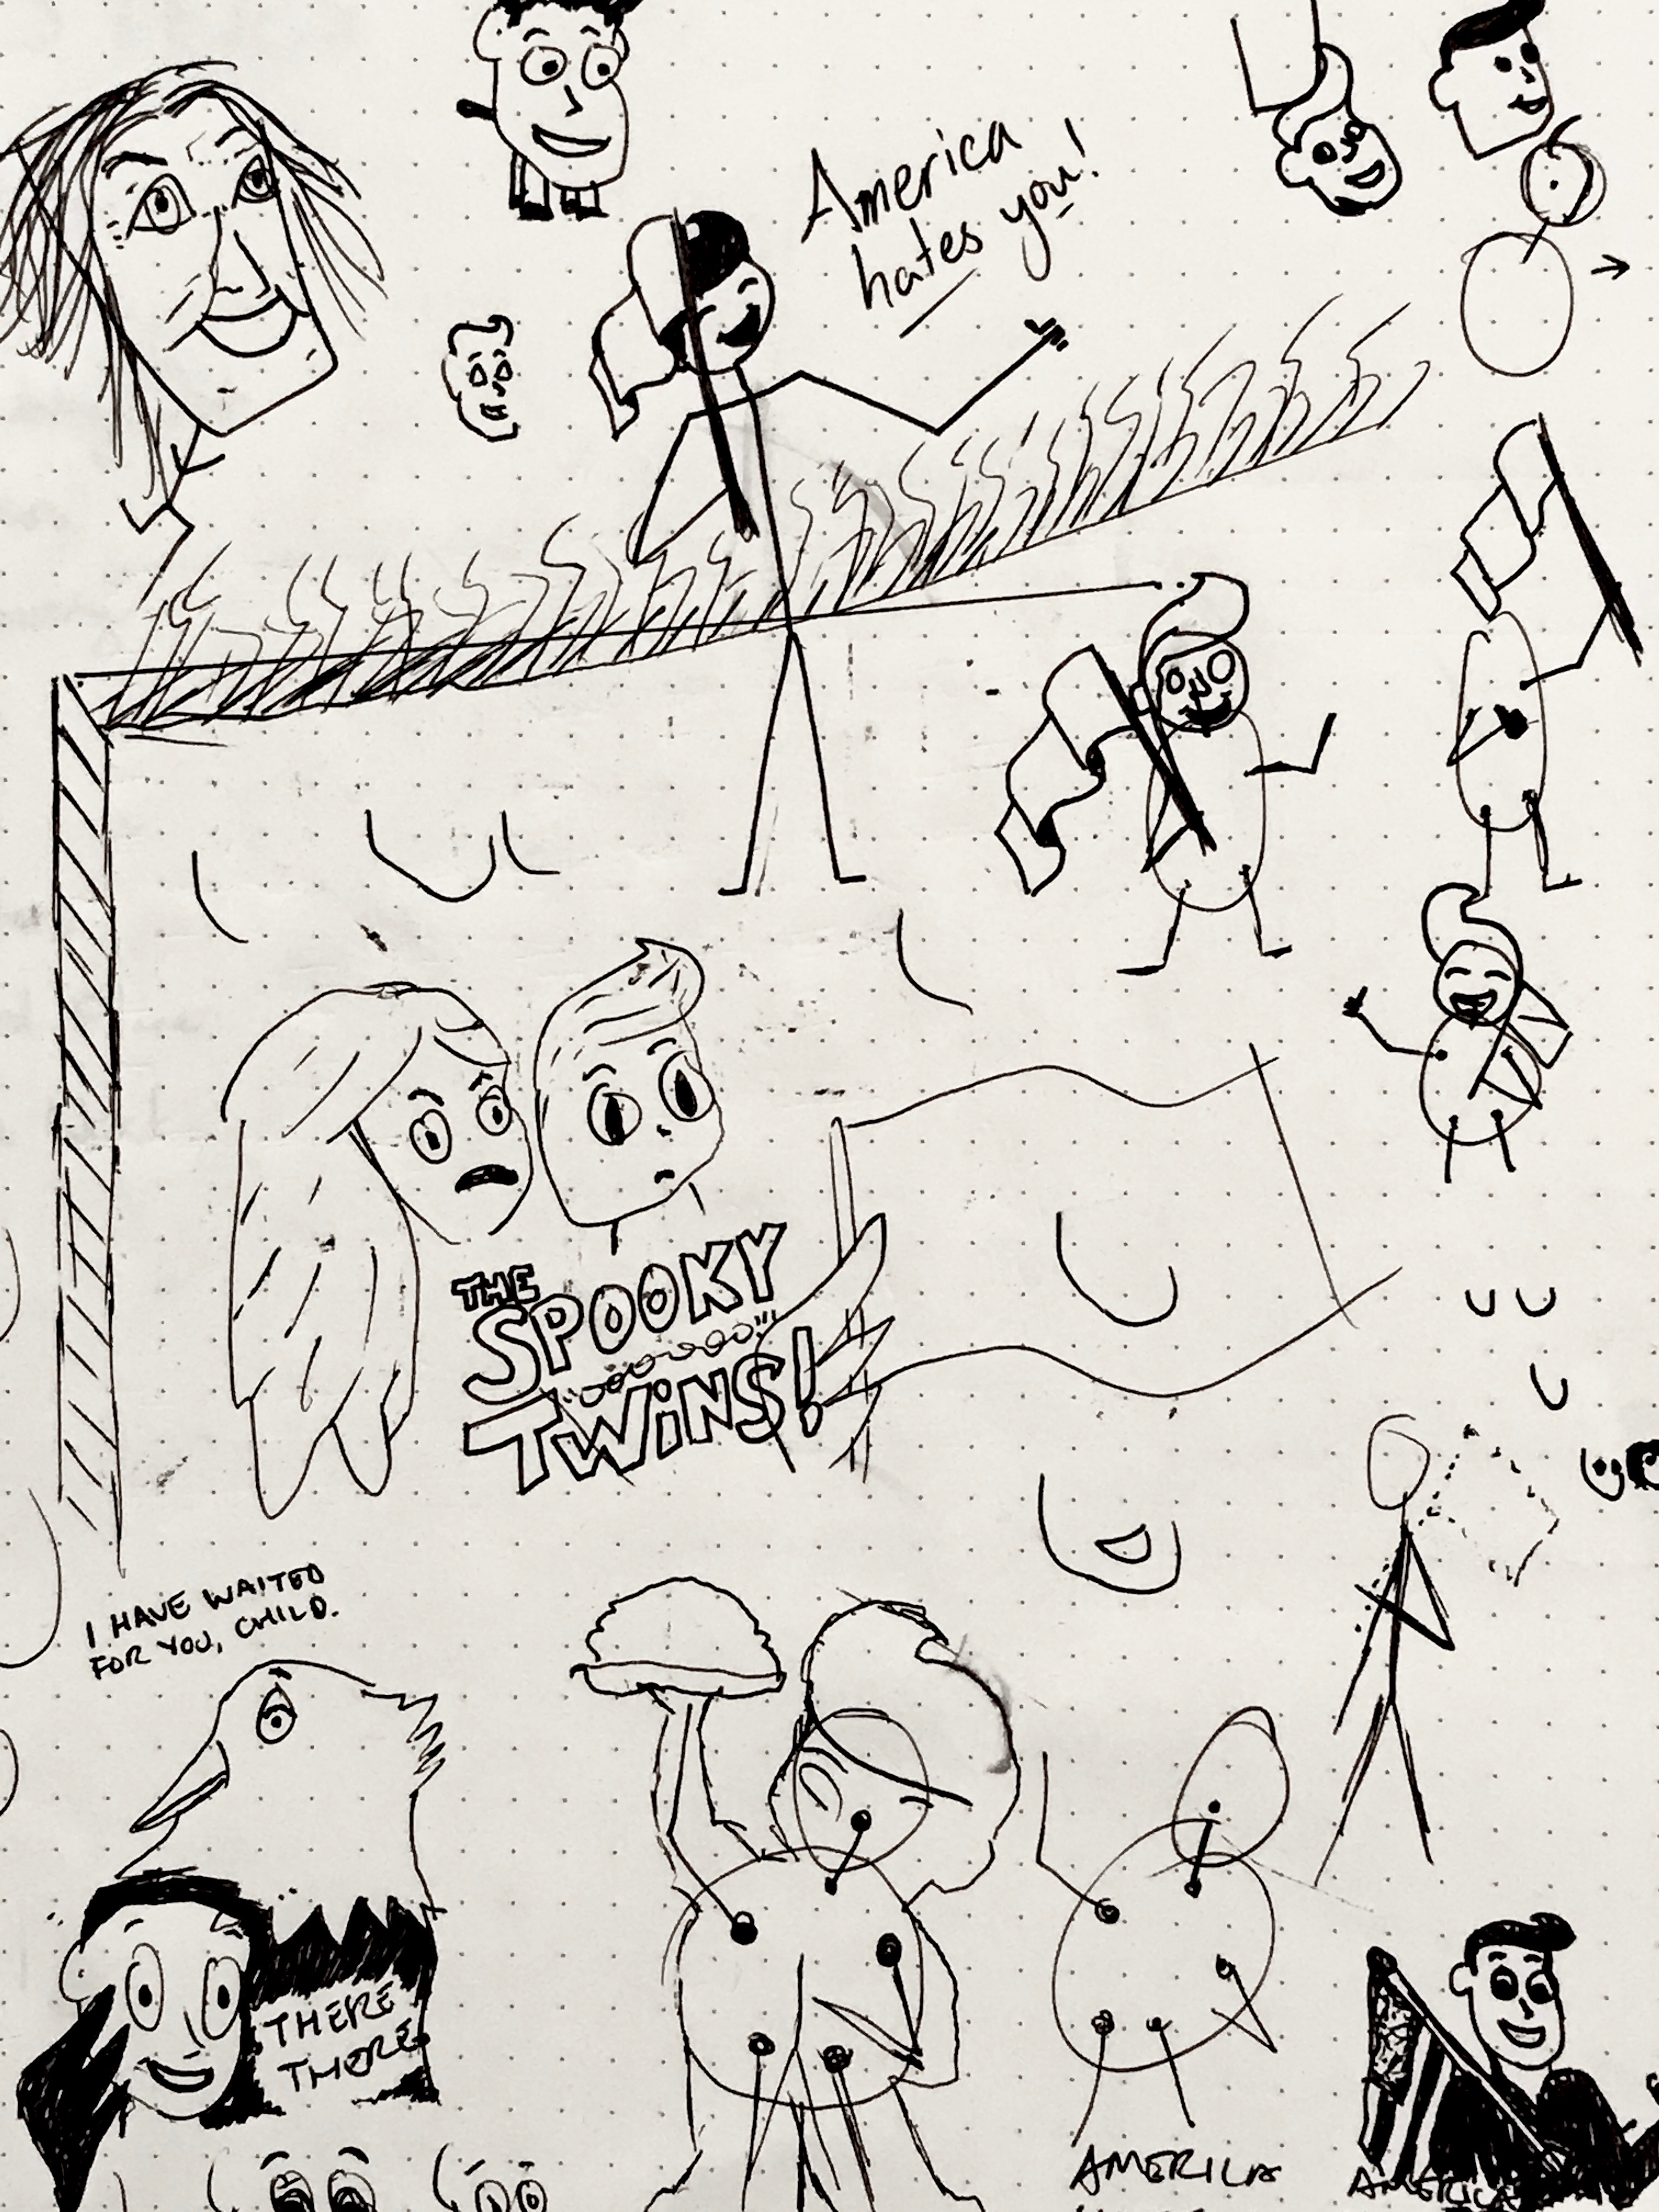 America
hates you!
THE
SPOOKY
TWiNS!
I HAVE WAITED
FOR YOU, CHILD.
THERE
THERE
AMERICA
AMERICA